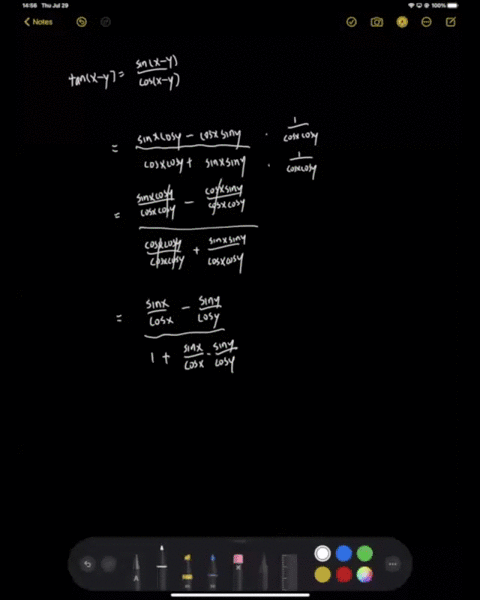 14:56 Thu Jul 29 100%
Notes
tan(x-y) = sin(x-y)/cos(x-y)
= (sinxcosy - cosxsiny)/(cosxcosy + sinxsiny) · (1/cosxcosy)/(1/cosxcosy)
= (sinxcosy/cosxcosy - cosxsiny/cosxcosy)/(cosxcosy/cosxcosy + sinxsiny/cosxcosy)
= (sinx/cosx - siny/cosy)/(1 + sinx/cosx · siny/cosy)
A